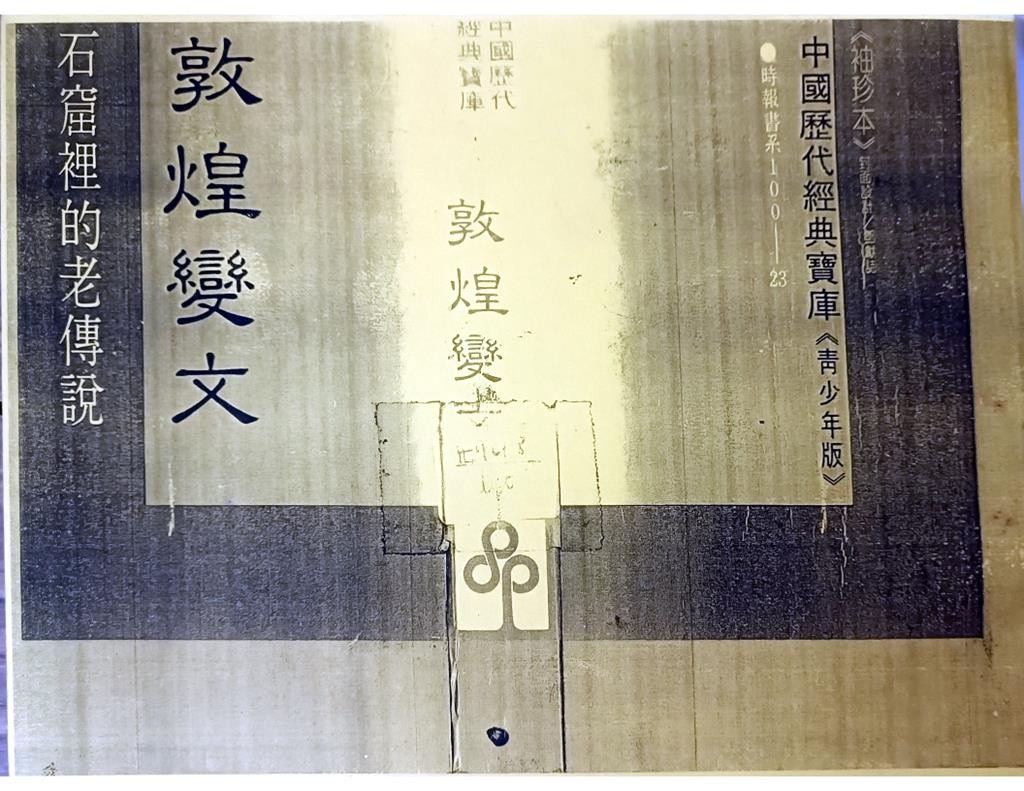 《袖珍本》封面設計／
中國歷代經典寶庫《青少年版》
●時報書系100—23
中國歷代
經典寶庫
敦煌變
敦煌變文
石窟裡的老傳說